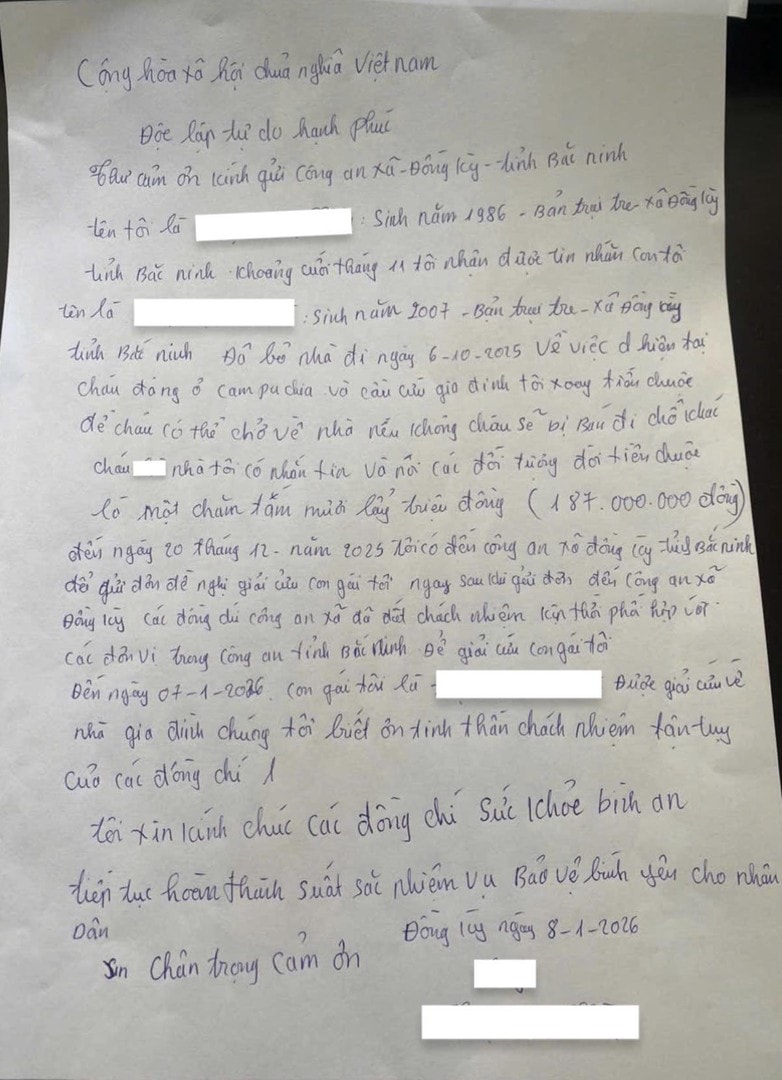 Cộng hòa xã hội chủa nghĩa Việt nam
Độc lập tự do hạnh phúc
Thư cảm ơn kính gửi Công an xã - Đồng kỳ - tỉnh Bắc ninh
tên tôi là : Sinh năm 1986 - Bản trại tre - xã Đồng kỳ
tỉnh Bắc ninh khoảng cuối tháng 11 tôi nhận được tin nhắn con tôi
tên là : Sinh năm 2007 - Bản trại tre - xã Đồng kỳ
tỉnh Bắc ninh Đã bỏ nhà đi ngày 6-10-2025 về việc d hiện tại
cháu đang ở campuchia và cầu cứu gia đình tôi xoay tiền chuộc
để cháu có thể chở về nhà nếu không cháu sẽ bị Bán đi chỗ khác
cháu nhà tôi có nhắn tin và nói các đối tượng đòi tiền chuộc
là một chăm tám mươi bẩy triệu đồng (187.000.000 đồng)
đến ngày 20 tháng 12 - năm 2025 tôi có đến công an xã đồng kỳ tỉnh Bắc ninh
để gửi đơn đề nghị giải cứu con gái tôi ngay sau khi gửi đơn đến Công an xã
Đồng kỳ các đồng chí công an xã đã chách nhiệm kịp thời phối hợp với
các đơn vị trong công an tỉnh Bắc Ninh Để giải cứu con gái tôi
Đến ngày 07-1-2026. con gái tôi là Được giải cứu về
nhà gia đình chúng tôi biết ơn tinh thần chách nhiệm tận tụy
của các đồng chí /
tôi xin kính chúc các đồng chí sức khỏe bình an
tiếp tục hoàn thành suất sắc nhiệm vụ Bảo vệ bình yên cho nhân
Dân
Đồng kỳ ngày 8-1-2026
xin chân trọng cảm ơn